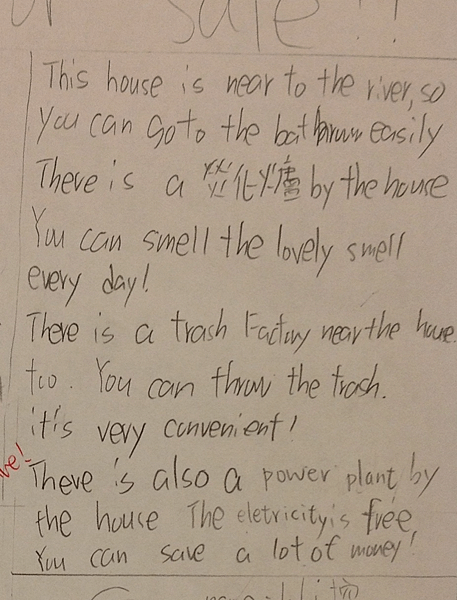 sale!!
This house is near to the river, so
You can go to the bathroom easily
There is a 焚化爐 by the house
You can smell the lovely smell
every day!
There is a trash Factory near the house
too. You can throw the trash.
it's very convenient!
There is also a power plant by
the house The eletricity is free
You can save a lot of money!